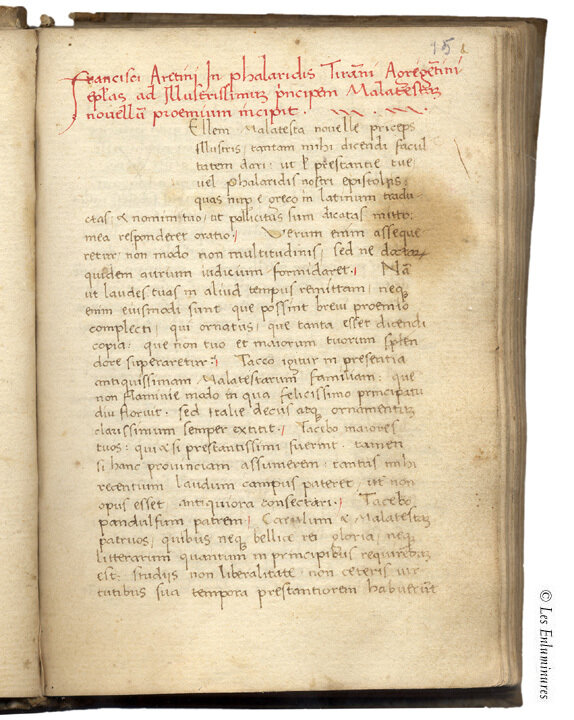 15
Francisci Aretini In phalaridis Tiranni Agregentini
eplas ad Illustrissimum principem Malatestam
novellum proemium incipit.
Ellem Malatesta novelle priceps
Illustris, tantam mihi dicendi facul
tatem dari: ut l prestantie tue
vel phalaridis nostri epistolis,
quas nup e greco in latinum tradu
ctas, & nomini tuo, ut pollicitus sum dicatas mitto:
mea responderet oratio. Verum enim asseque
retur, non modo non multitudinis, sed ne doctor
quidem aurum iudicium formidaret. Nā
ut laudes tuas in aliud tempus remittam, neq
enim eiusmodi sunt que possint brevi proemio
complecti, qui ornatus, que tanta esset dicendi
copia, que non tuo et maiorum tuorum splen
dore superaretur. Taceo igitur in presentia
antiquissimam Malatestarum familiam, que
non flaminie modo in qua felicissimo principatu
diu floruit, sed Italie decus atq ornamentum
clarissimum semper extitit. Tacebo maiores
tuos: qui & si prestantissimi fuerint, tamen
si hanc provinciam assumerem, tantus mihi
recentium laudum campus pateret, ut non
opus esset antiquiora consectari. Tacebo
pandulfum patrem, Carulum & Malatestam
patruos, quibus neq bellice rei gloria, neq
litterarum quantum in principibus requirendum
est, studijs non liberalitate non ceteris vir
tutibus sua tempora prestantiorem habuerūt
© Les Enluminures